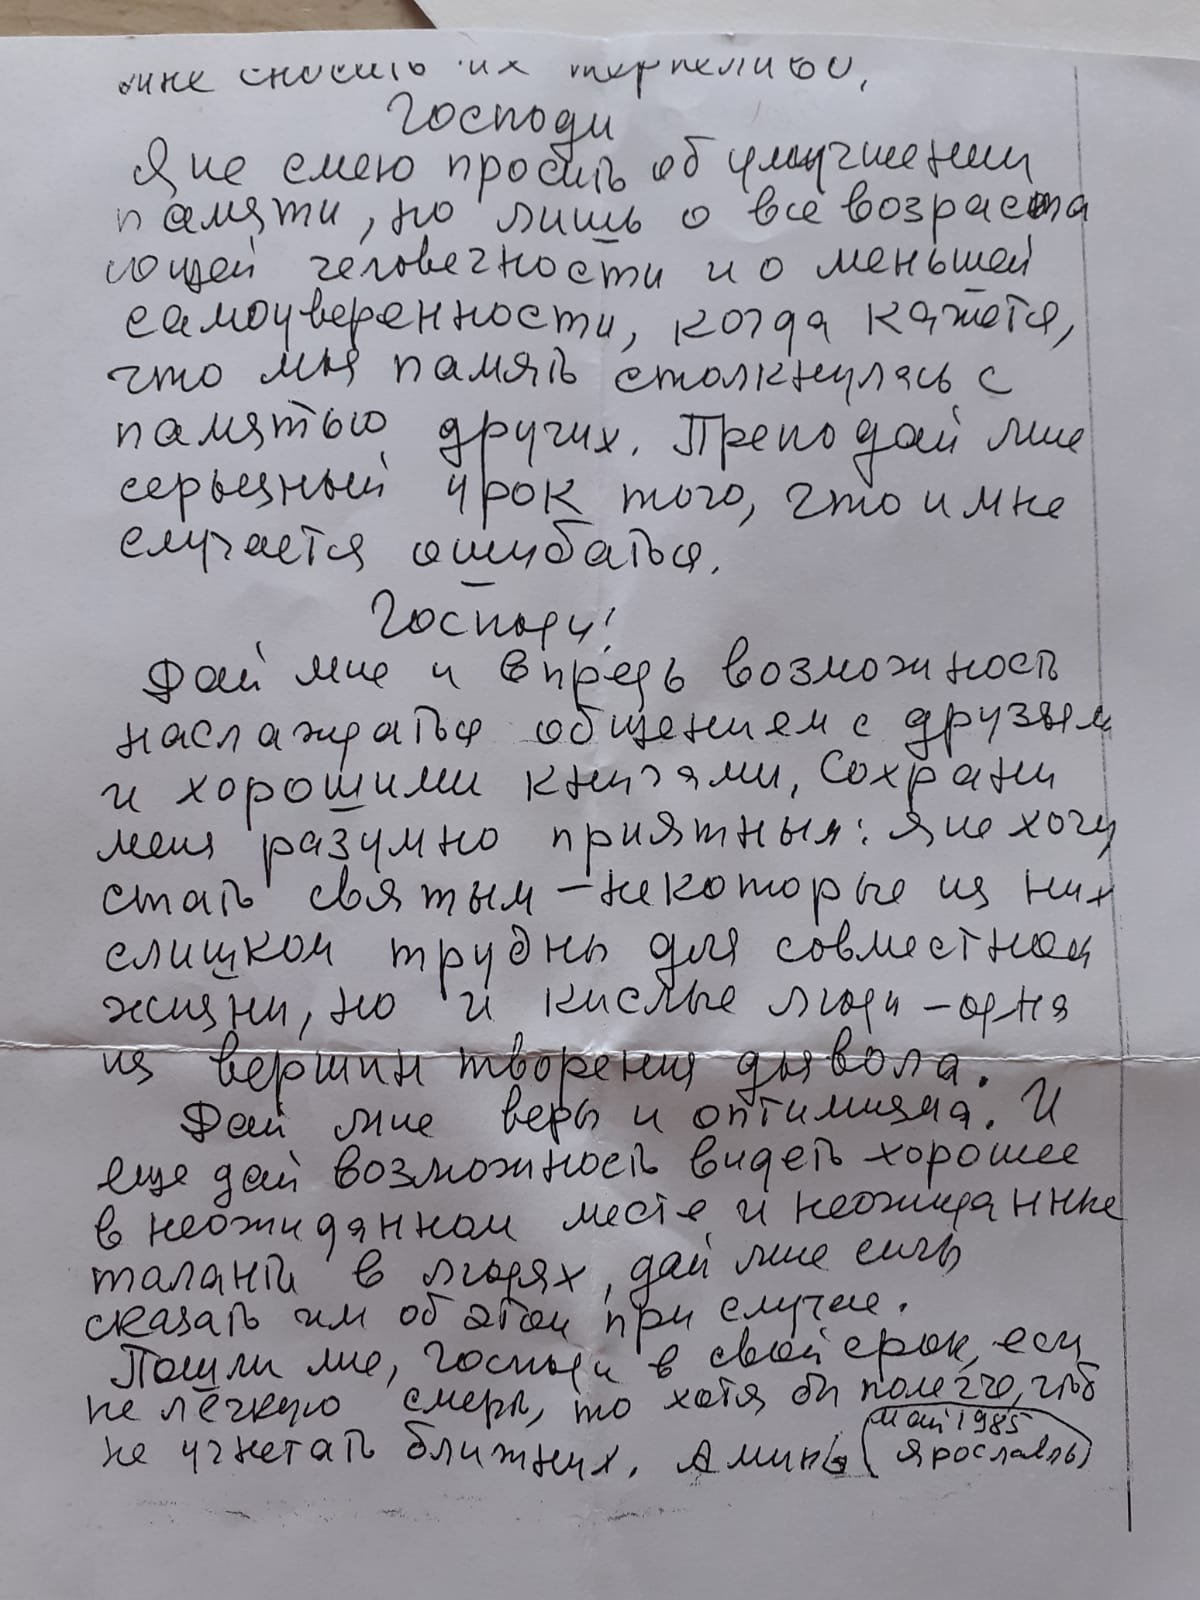 мне сносить их терпеливо.
Господи
Я не смею просить об улучшении
памяти, но лишь о все возраста
ющей человечности и о меньшей
самоуверенности, когда кажется,
что моя память столкнулась с
памятью других. Преподай мне
серьезный урок того, что и мне
случается ошибаться.
Господи!
Дай мне и впредь возможность
наслаждаться общением с друзьям
и хорошими книгами, Сохрани
меня разумно приятным: я не хочу
стать святым – некоторые из них
слишком трудны для совместной
жизни, но и кислые люди – одна
из вершин творения дьявола.
Дай мне веры и оптимизма. И
еще дай возможность видеть хорошее
в неожиданном месте и неожиданные
таланты в людях, дай мне силы
сказать им об этом при случае.
Пошли мне, Господи в свой срок, если
не лёгкую смерть, то хотя бы полегче, чтоб
не угнетать ближних. Аминь
(май 1985
Ярославль)